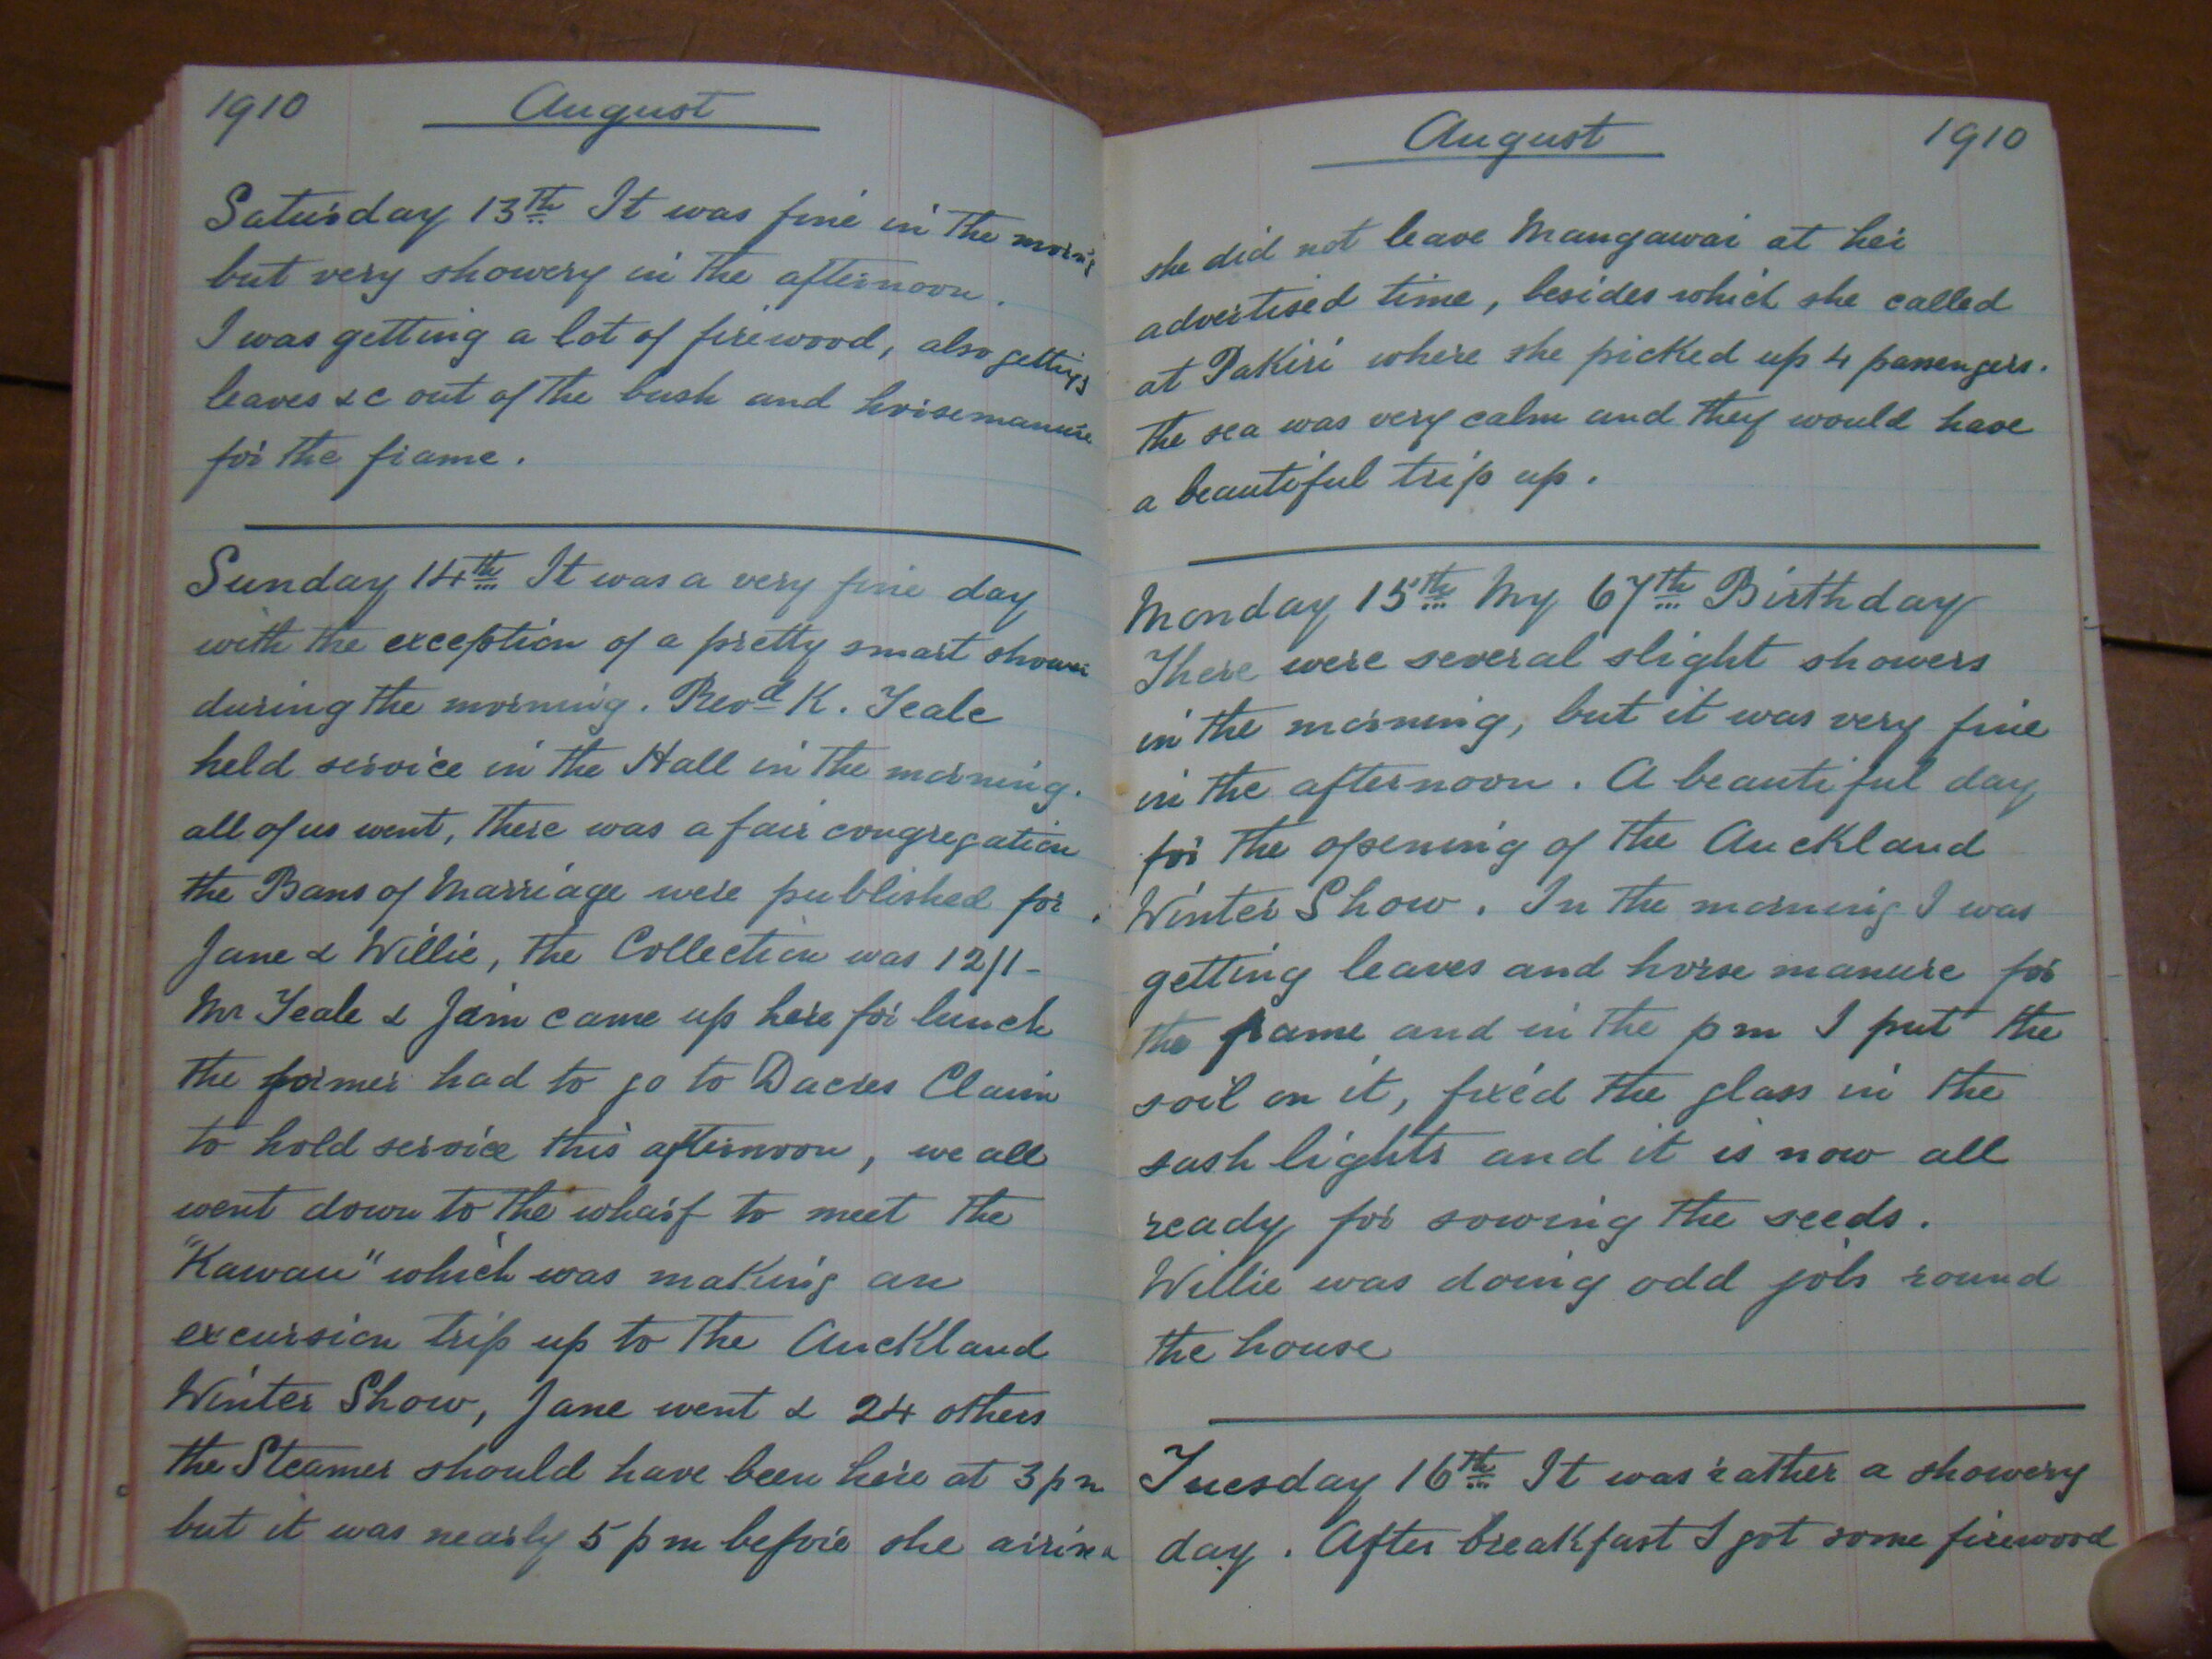 1910 August
Saturday 13th It was fine in the morning
but very showery in the afternoon.
I was getting a lot of firewood, also getting
leaves &c out of the bush and horse manure
for the frame.
Sunday 14th It was a very fine day
with the exception of a pretty smart shower
during the morning. Revd K. Teale
held service in the Hall in the morning.
all of us went, there was a fair congregation
the Bans of Marriage were published for
Jane & Willie, the Collection was 12/1-
Mr Teale & Jaim came up here for lunch
the former had to go to Dacres Claim
to hold service this afternoon, we all
went down to the wharf to meet the
"Kawau" which was making an
excursion trip up to the Auckland
Winter Show, Jane went & 24 others
the Steamer should have been here at 3 pm
but it was nearly 5 pm before she arrived
August 1910
she did not leave Mangawai at her
advertised time, besides which she called
at Pakiri where she picked up 4 passengers.
the sea was very calm and they would have
a beautiful trip up.
Monday 15th My 67th Birthday
There were several slight showers
in the morning, but it was very fine
in the afternoon. A beautiful day
for the opening of the Auckland
Winter Show. In the morning I was
getting leaves and horse manure for
the frame and in the pm I put the
soil on it, fixe'd the glass in the
sash lights and it is now all
ready for sowing the seeds.
Willie was doing odd jobs round
the house
Tuesday 16th It was rather a showery
day. After breakfast I got some firewood